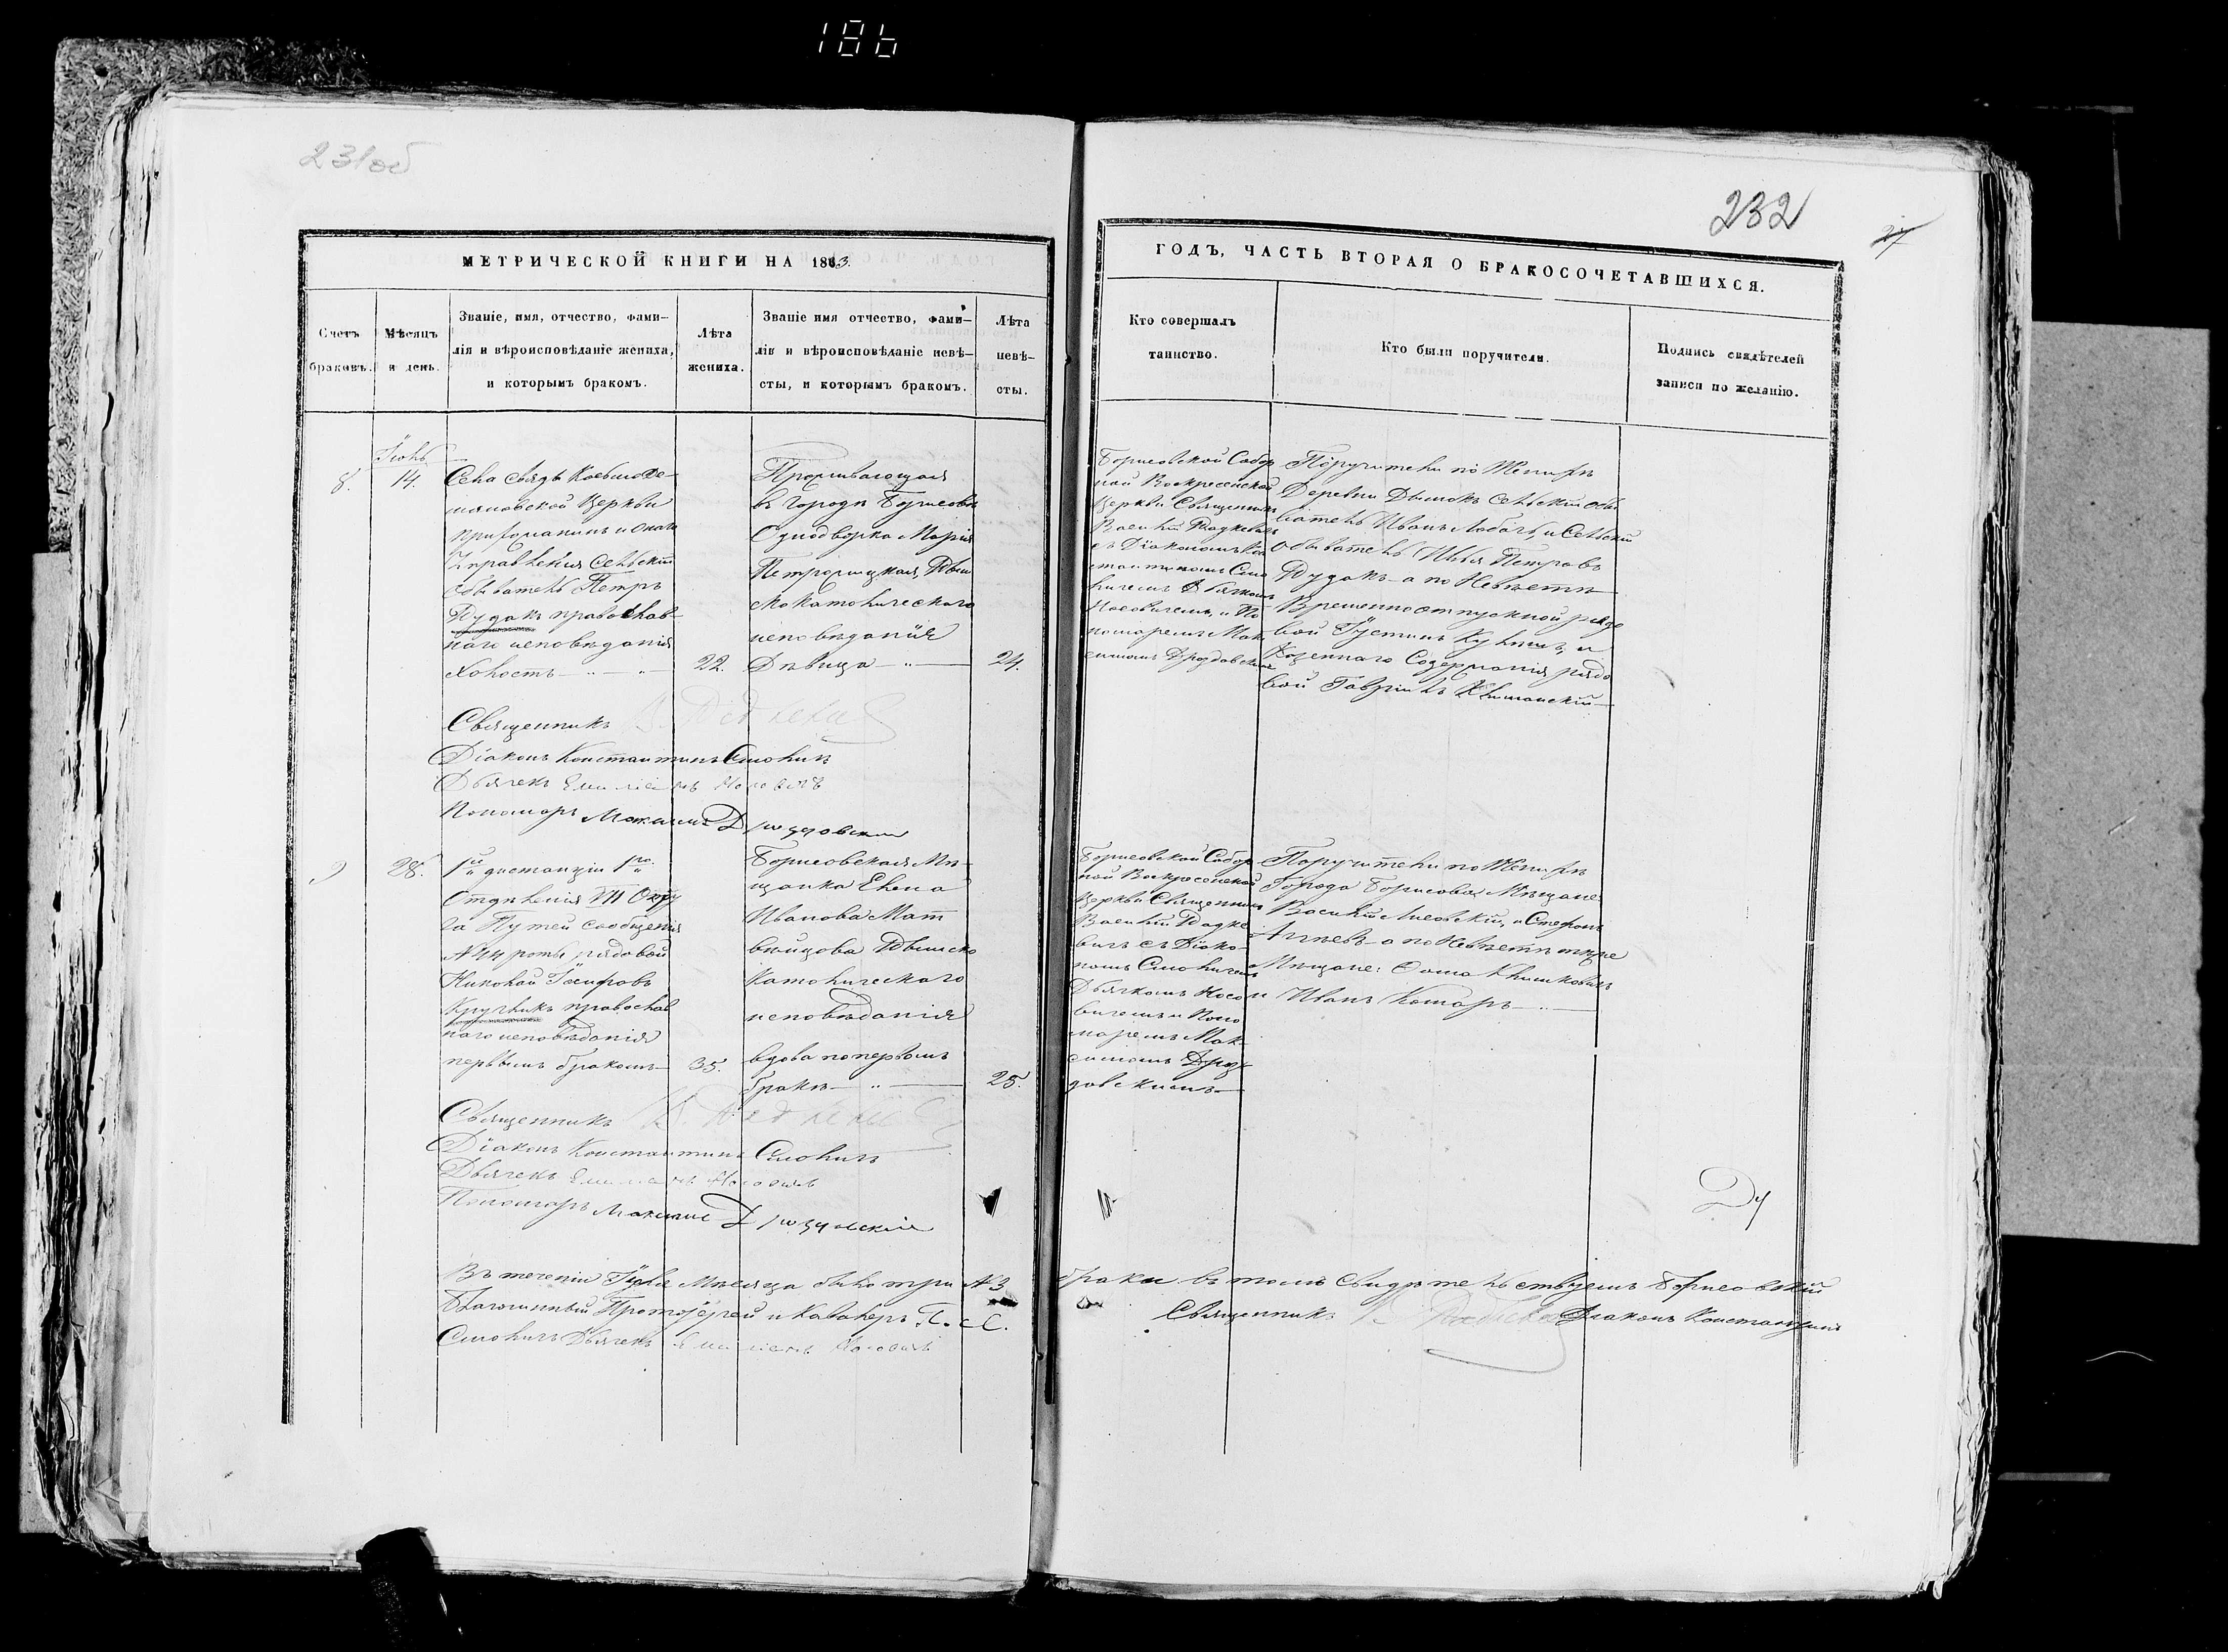 186
231об
232
27
МЕТРИЧЕСКОЙ КНИГИ НА 1863
ГОДЪ, ЧАСТЬ ВТОРАЯ О БРАКОСОЧЕТАВШИХСЯ.
Счетъ
браковъ.
Мѣсяцъ
и день.
Званіе, имя, отчество, фами-
лія и вѣроисповѣданіе жениха,
и которымъ бракомъ.
Лѣта
жениха.
Званіе имя отчество, фами-
лія и вѣроисповѣданіе невѣ-
сты, и которымъ бракомъ.
Лѣта
невѣ-
сты.
Кто совершалъ
таинство.
Кто были поручители.
Подпись свидѣтелей
записи по желанію.
8.
Іюнь
14.
Села
церкви
прихожанинъ и онаго
Управленія Сельскій
обыватель Петръ
Дудакъ православ-
наго исповѣданія
холостъ
22.
Проживающая
въ городѣ Борисовѣ
Однодворка Марія
Римско
Католическаго
исповѣданія
Дѣвица
24.
Борисовской Собор
ной Воскресенской
Церкви Священникъ
Василій
съ Діакономъ Кон
стантиномъ Смо
личемъ Дьячкомъ
Носовичемъ и По
номаремъ Мак
симомъ Дроздовскимъ
Поручители по Женихѣ
Деревни Дымокъ Сельскій обы
ватель Иванъ Лобачъ, и Сельскій
обыватель Илья Петровъ
Дудакъ а по Невѣстѣ
Временноотпускной рядо
вой Іустинъ и
Казеннаго Содержанія рядо
вой Гавріилъ Климанскій
Священникъ
Діаконъ Константинъ Смоличъ
Дьячекъ Емиліанъ Носовичъ
Пономарь Максимъ Дроздовскій
9
28.
1й дистанціи 1го
Отдѣленія VIII Окру
га Путей сообщенія
роты рядовой
Николай Іосифовъ
Кручекъ православ
наго исповѣданія
первымъ бракомъ
35.
Борисовская Мѣ-
щанка Елена
Иванова Мат
вѣйцова Римско
Католическаго
исповѣданія
вдова по первомъ
бракѣ
25.
Борисовской Собор
ной Воскресенской
Церкви Священникъ
Василій
вичъ съ Діако-
номъ Смоличемъ
Дьячкомъ Носо
вичемъ и Поно
маремъ Мак-
симомъ Дроз
довскимъ
Поручители по Женихѣ
Города Борисова Мѣщане:
Василій Лисовскій, и Стефанъ
а по Невѣстѣ тѣже
Мѣщане: Фома Климковичъ
и Иванъ Комаръ
Священникъ
Діаконъ Константинъ Смоличъ
Дьячекъ Емиліанъ Носовичъ
Пономарь Максимъ Дроздовскій
Въ теченіи Іюня Мѣсяца было три № 3 браки въ томъ свидѣтельствуемъ Борисовскій
Благочинный Протоіерей и Кавалеръ Священникъ Діаконъ Константинъ
Смоличъ Дьячекъ Емиліанъ Носовичъ